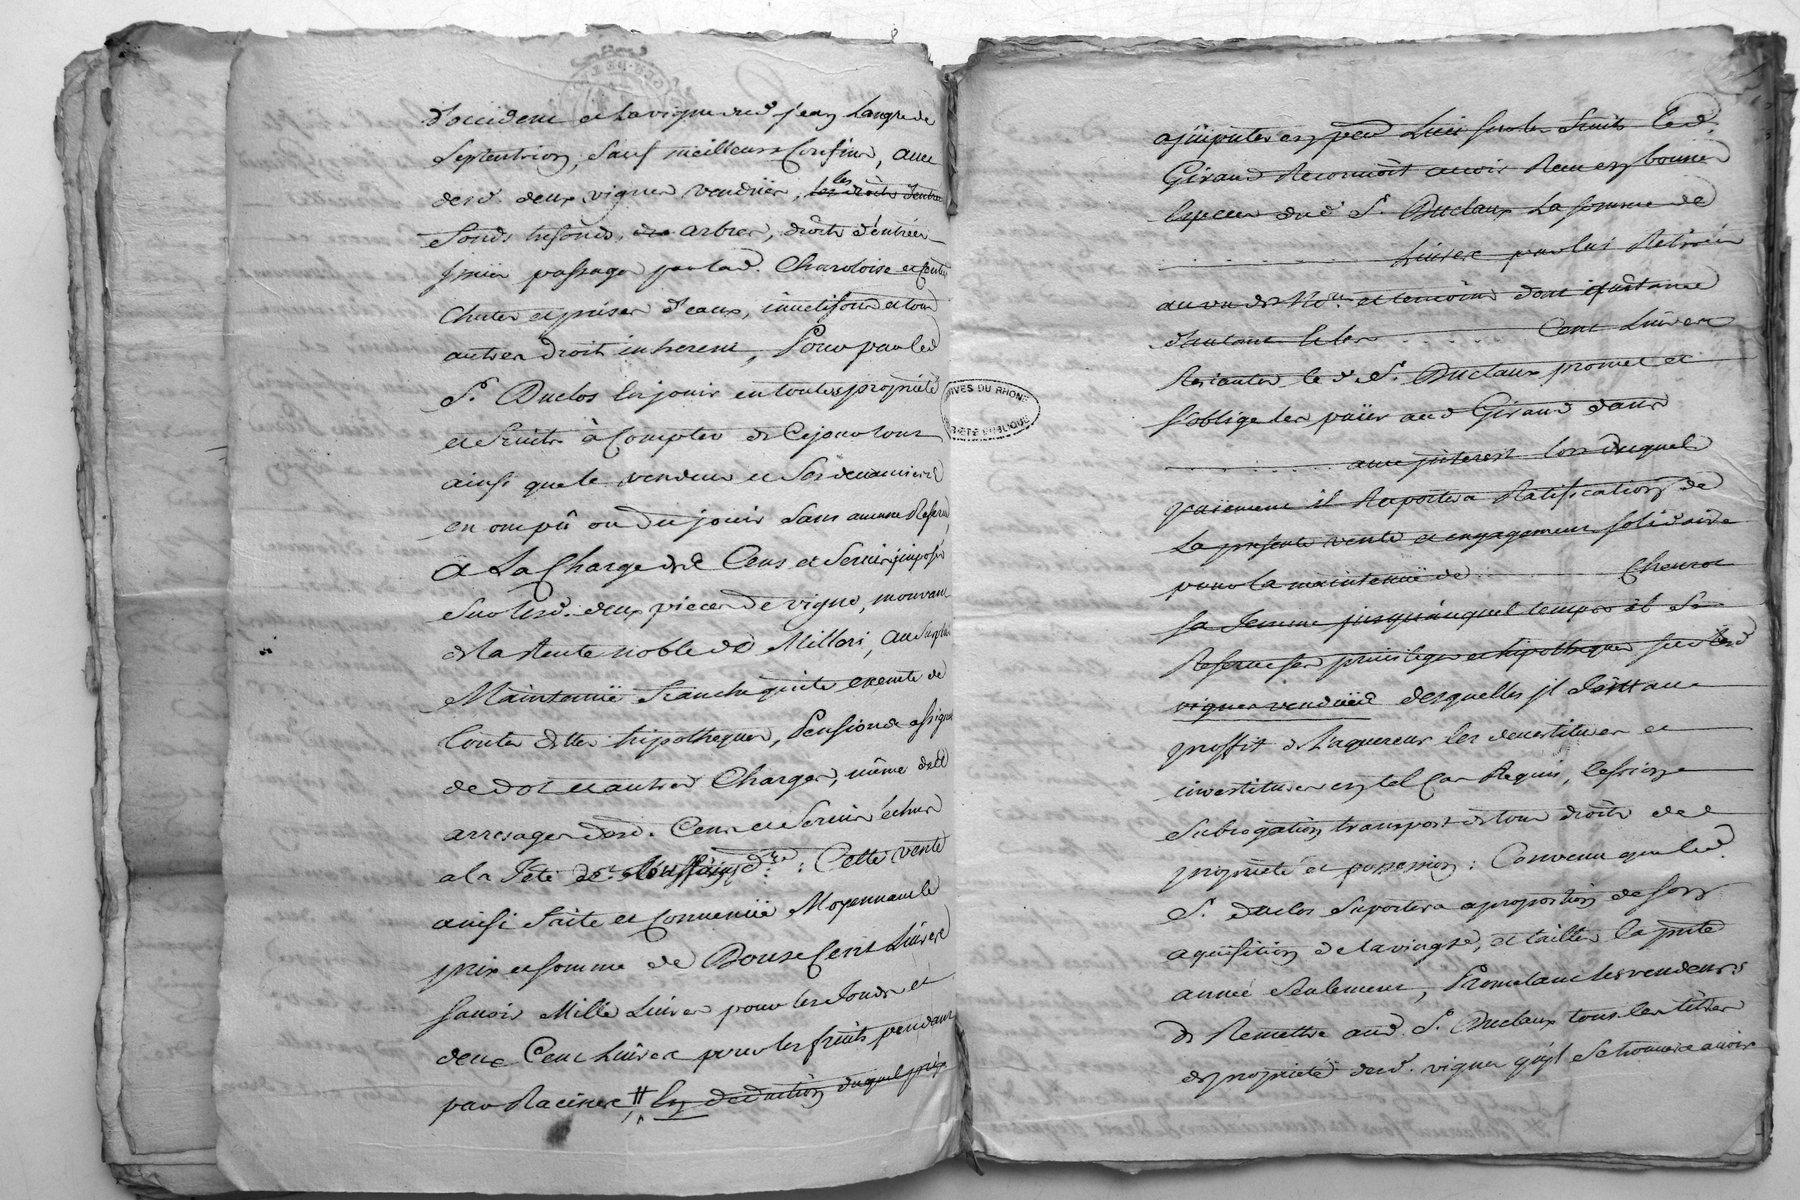 d'occident et la vigne dud. jean Langre de
Septentrion, Sauf meilleurs Confins, avec
desd. deux vignes vendües, les
fonds tresfonds, arbres, droits d'entrées
passages par lad. Charoloise
Chutes et prises d'eaux, et tous
autres droits inherens, Pour par led
Sr. Duclos En jouir en toutes propriété
et fruits à Compter de Cejourd'huy
ainsi que le vendeur et Ses devanciers
en ont pû ou du jouir Sans aucune Reserve,
à La Charge des Cens et Servis imposés
Sur lesd. deux pieces de vigne, mouvant
de la Rente noble de Milleri, au Surplus
Maintenüe franche quitte exempte de
toutes dettes hipotheques, Pensions assignat
de dot et autres Charges, même des
arrerages desd. Cens et Servis échus
a la fete de : Cette vente
ainsi faite et Convenüe Moyennant le
prix et somme de Douze Cent Livres
Savoir Mille Livres pour les fonds et
deux Cent Livres pour les fruits pendant
par Racines # En deduction duquel prix
ARCHIVES DU RHONE
PROPRIÉTÉ PUBLIQUE
led.
Giraud Reconnoît avoir Receu en bonnes
Especes dud Sr. Duclaux La somme de
. . . . . . . Livres par lui Retirées
au vu des No.res et temoins dont quittance
d'autant Et les . . . . . Cent Livres
Restantes led. Sr. Duclaux promet et
s'oblige les païer aud Giraud dans
. . . . . . . avec interest lors duquel
païement il Raportera Ratification de
La presente vente et engagement solidaire
pour la maintenüe de . . . . . Chevrot
sa femme jusqu'auquel temps il Se
Reserve ses privileges et hipotheques sur lesd
vignes vendües desquelles il
proffit de l'aquereur les devestitures et
investitures en tel Cas Requis, Cession
Subrogation transport de tous droits de
propriété et possession : Convenu que led.
Sr. duclos Suportera a proportion de son
aquisition de la vingte, et tailles la pnte
année Seulement, Promettant les vendeurs
de Remettre aud. Sr. Duclaux tous les titres
de proprieté desd. vignes qu'il Se trouvera avoir